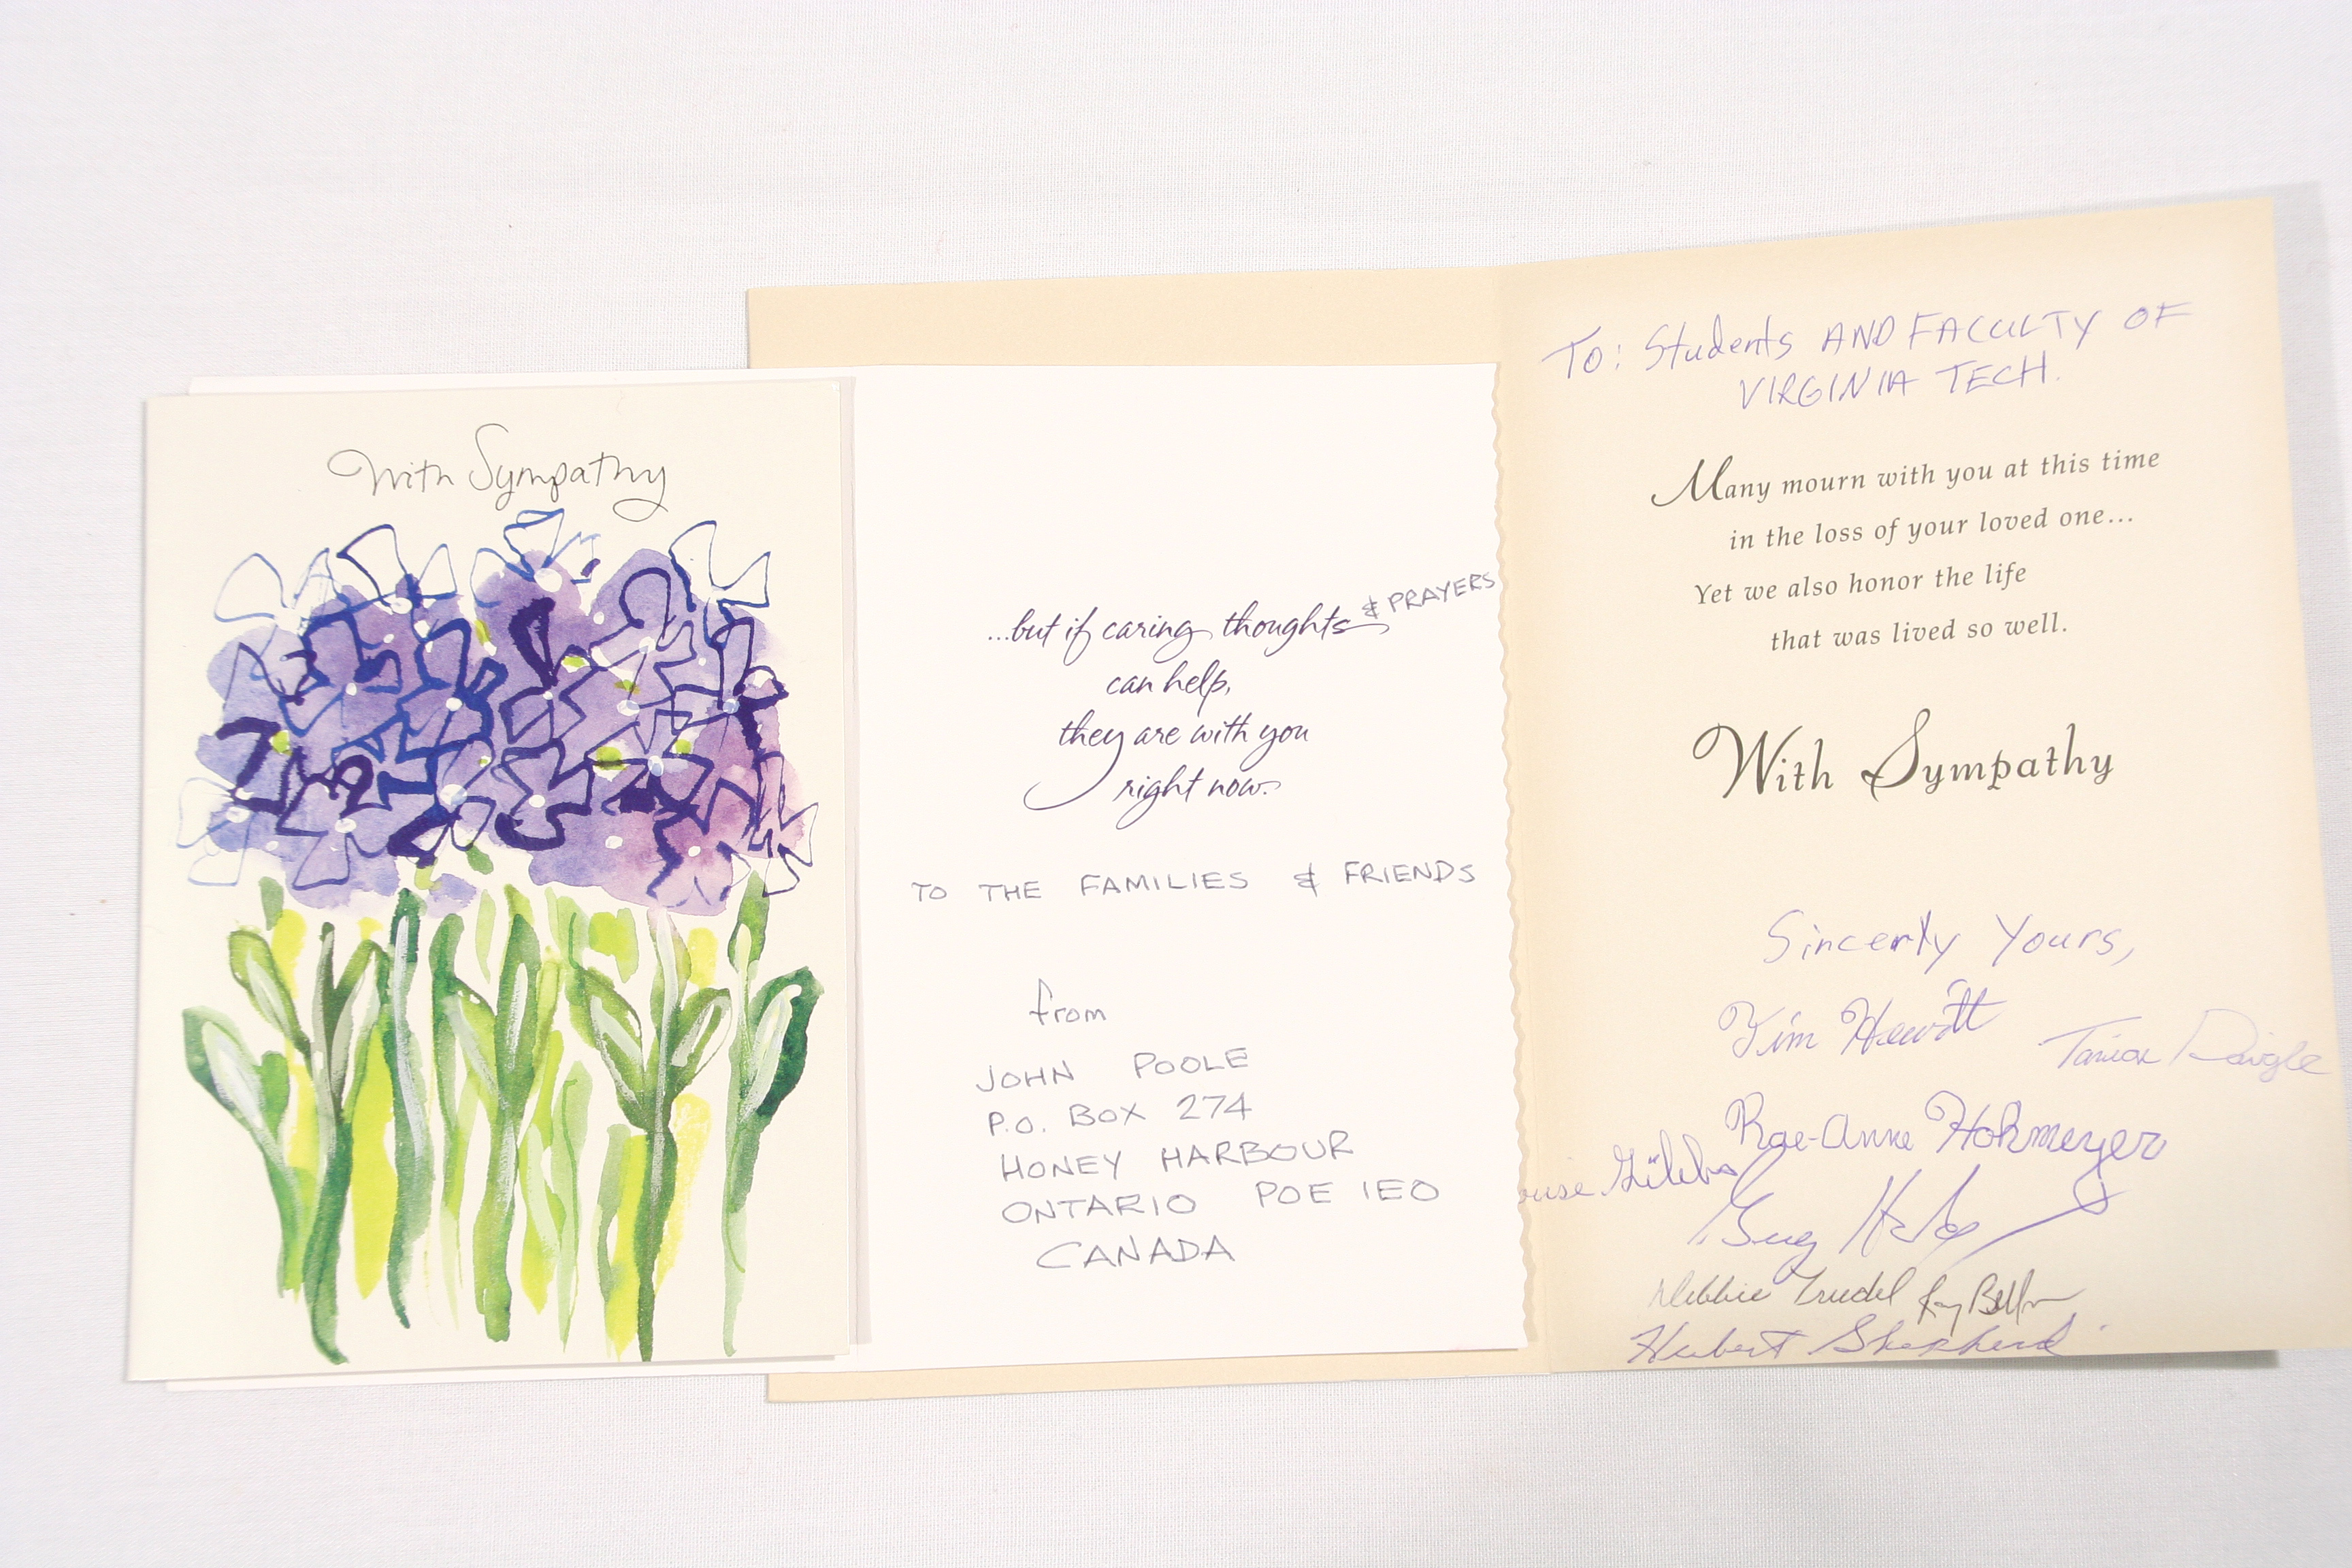 With Sympathy
...but if caring thoughts & PRAYERS
can help,
they are with you
right now.
TO THE FAMILIES & FRIENDS
from
JOHN POOLE
P.O. BOX 274
HONEY HARBOUR
ONTARIO POE 1EO
CANADA
To: Students AND FACULTY OF
VIRGINIA TECH.
Many mourn with you at this time
in the loss of your loved one...
Yet we also honor the life
that was lived so well.
With Sympathy
Sincerly Yours,
Tim Hewitt
Tania Daigle
Rae-Anne Hohmeyer
Debbie Trudel Ray
Hubert Shepherd.